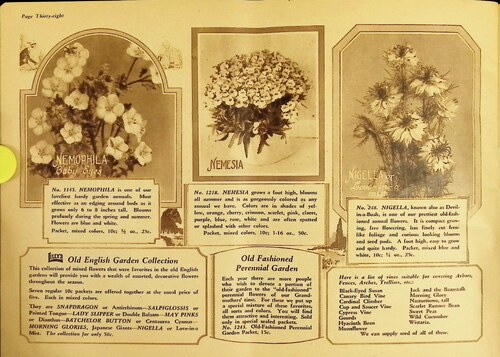 Page Thirty-eight
NEMOPHILA
Baby Eyes
No. 1145. NEMOPHILA is one of our
loveliest hardy garden annuals. Most
effective as an edging around beds as it
grows only 6 to 8 inches tall. Blooms
profusely during the spring and summer.
Flowers are blue and white.
Packet, mixed colors, 10c; ½ oz., 25c.
NEMESIA
No. 1218. NEMESIA grows a foot high, blooms
all summer and is as gorgeously colored as any
annual we know. Colors are in shades of yel-
low, orange, cherry, crimson, scarlet, pink, claret,
purple, blue, rose, white and are often spotted
or splashed with other colors.
Packet, mixed colors, 10c; 1-16 oz., 50c.
NIGELLA
No. 248. NIGELLA, known also as Devil-
in-a-Bush, is one of our prettiest old-fash-
ioned annual flowers. It is compact grow-
ing, free flowering, has finely cut fern-
like foliage and curious looking blooms
and seed pods. A fast high, easy to grow
and quite hardy. Packet, mixed blue and
white, 10c; ½ oz., 25c.
Old English Garden Collection
This collection of mixed flowers that were favorites in the old English
gardens will provide you with a wealth of assorted, decorative flowers
throughout the season.
Seven regular 10c packets are offered together at the usual price of
five. Each in mixed colors.
They are SNAPDRAGON or Antirrhinum—SALPIGLOSSIS or
Painted Tongue—LADY SLIPPER or Double Balsam—MAY PINKS
or Dianthus—BATCHELOR BUTTON or Centaurea Cyanus—
MORNING GLORIES, Japanese Giants—NIGELLA or Love-in-a-
Mist. The collection for only 50c.
Old Fashioned
Perennial Garden
Each year there are more people
who wish to devote a portion of
their garden to the "old-fashioned"
perennial flowers of our Grand-
mothers' time. For these we put up
a special mixture of these favorites,
all sorts and colors. You will find
these attractive and interesting. Sold
only in special sealed packets.
No. 1245. Old-Fashioned Perennial
Garden Packet, 15c.
Here is a list of vines suitable for covering Arbors,
Fences, Arches, Trellises, etc.:
Black-Eyed Susan
Canary Bird Vine
Cardinal Climber
Cup and Saucer Vine
Cypress Vine
Gourds
Hyacinth Bean
Moonflower
Jack and the Beanstalk
Morning Glory
Nasturtiums, tall
Scarlet Runner Bean
Sweet Peas
Wild Cucumber
Wistaria.
We can supply seed of all of these.